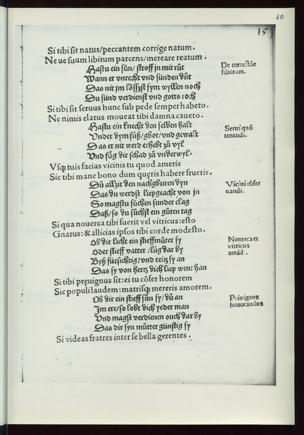 40
15
Si tibi sit natus/peccantem corrige natum.
Ne ue suum libitum parcens/mereare reatum.
Hastu ein sün/ stroff jn mit rüt
Wann er vnrecht vnd sünden düt
Das nit jm lössest sym wyllen noch
Du sünd verdienst vnd gotts roch
De correctõe filiorum.
Si tibi sit seruus hunc sub pede semper habeto.
Ne nimis elatus moueat tibi damna caueto.
Hastu ein knecht den selben halt
Vnder dym füß/ vnd gewalt
Das er nit werd erhebt zů vyl
Vnd füg dir schad zů
Serui quõ tenendi.
Vsq; tuis facias vicinis tu quod ameris
Sic tibi mane bono dum queris habere frueris.
Dů allzit den nachgburen dyn
Das du werdst lieb von jn
So magstu süchen sunder clag
Daß/so du süchst ein gůten tag
Vicini obser uandi.
Si qua nouerca tibi fuerit vel vitricus: esto
Gnarus: & allicias ipsos tibi corde modesto.
Ob dir licht ein stieffmůter sy
Oder stieff vatter / lůg dar by
Byß fürsichtig/ vnd reitz sy an
Das sy von hertz dich liep wen han
Nouerca et vitricus amãd.
Si tibi priuignus sit: ei tu cõfer honorem
Sic populi laudem: matrisq; mereris amorem.
Ob dir ein stieff sün sy/ dů an
Im ere/so lobt dich yeder man
Vnd magst verdienen ouch dar by
Das dir syn můtter günstig sy
Priuignus honorandus
Si videas fratres inter se bella gerentes.